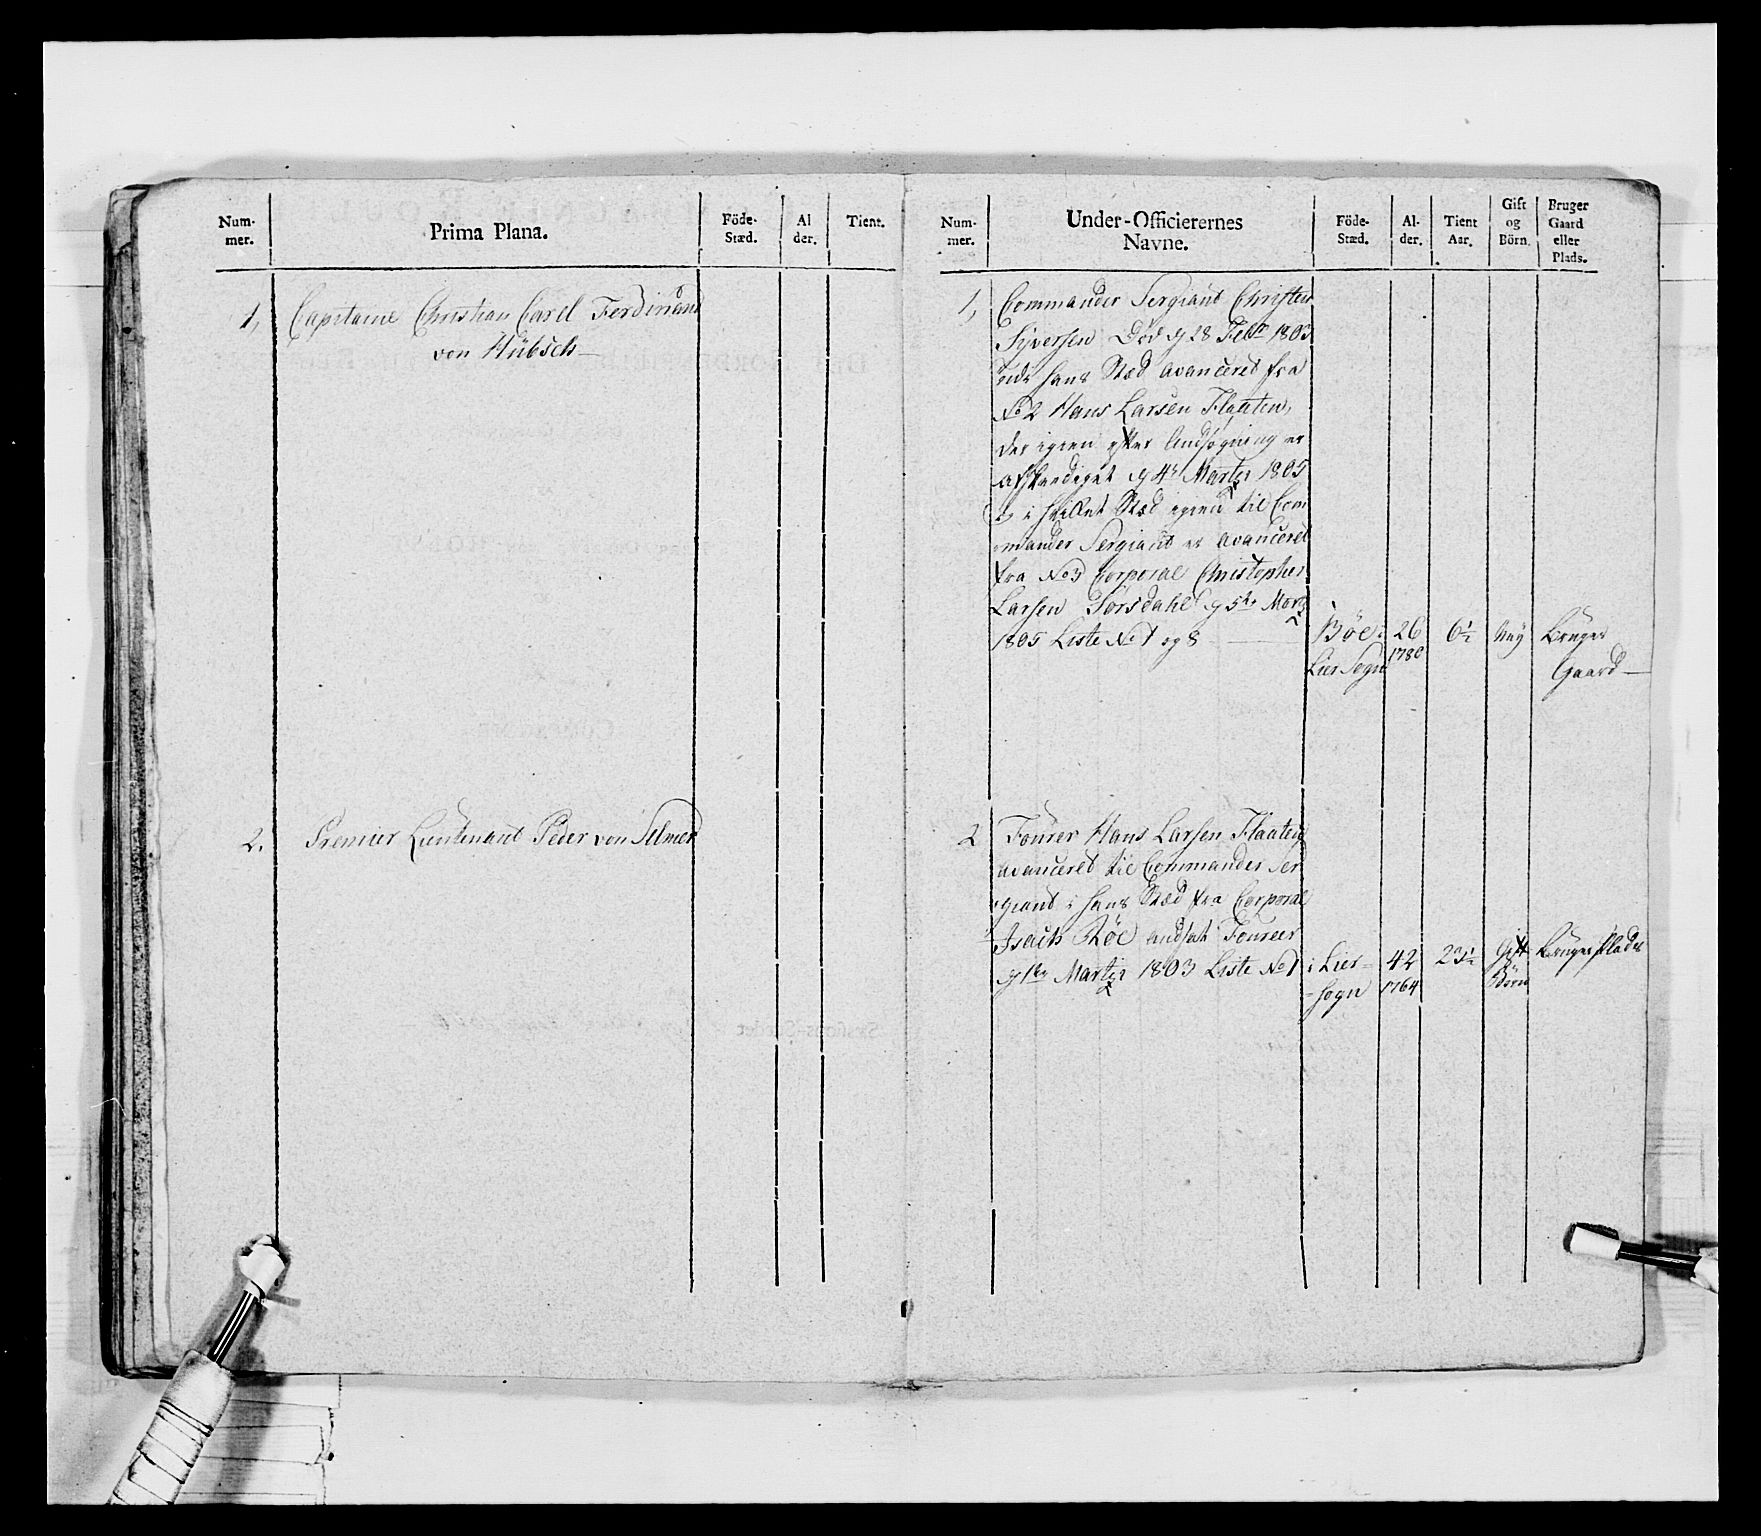 Num-
mer.
Prima Plana.
Föde-
Stæd.
Al
der.
Tient.
1,
Capitaine Christian Carl Ferdinand
von Hübsch
2.
Premier Lieutenant Peder von Selmer
Num-
mer.
Under-Officierernes
Navne.
Föde-
Stæd.
Al-
der.
Tient
Aar.
Gift
og
Börn.
Bruger
Gaard
eller
Plads.
1,
Commander Sergiant Christen
Syversen Död 28 Febr 1803
hans Stæd avanceret fra
No 2 Hans Larsen Flaaten,
der igien efter Ansøgning er
afskediget 4de Martz 1805
i hvilket Stæd igien til Com
mander Sergiant er avanceret
fra No 3 Corporal Christopher
Larsen Torsdahl 5te Martz
1805 Liste No 1 og 8
Böe i
Lier Sogn
26
1780
6½
Ney
Bruger
Gaard
2
Fourer Hans Larsen Flaaten
avanceret til Commander Ser
giant i hans Stæd fra Corporal
Isach Röe ansat Fourer
1te Martz 1803 Liste No 1
i Lier
Sogn
42
1764
23½
Gift
Börn
Bruger Plads